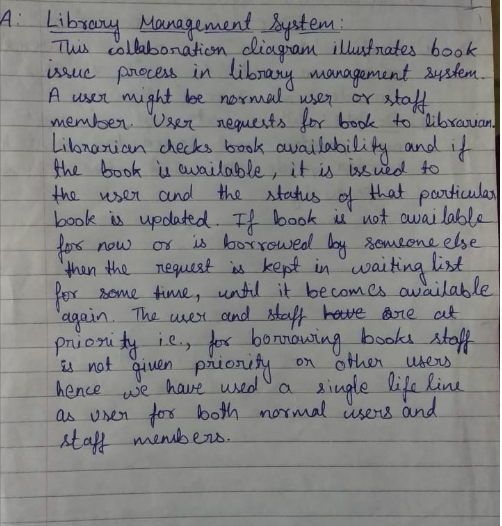 A: Library Management System:
This collaboration diagram illustrates book
issue process in library management system.
A user might be normal user or staff
member. User requests for book to librarian.
Librarian checks book availability and if
the book is available, it is issued to
the user and the status of that particular
book is updated. If book is not available
for now or is borrowed by someone else
then the request is kept in waiting list
for some time, until it becomes available
again. The user and staff have are at
priority i.e., for borrowing books staff
is not given priority or other users
hence we have used a single life line
as user for both normal users and
staff members.